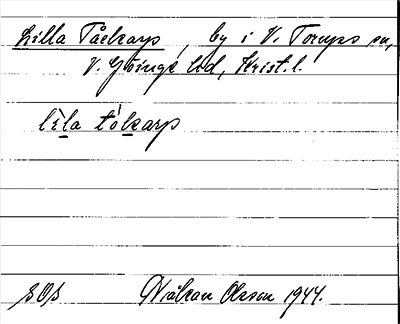 Lilla Tåckarp, by i V. Torups sn,
V. Göinge hd, Krist. l.
lìla tókarp
SOS Håkan Olsson 1944.